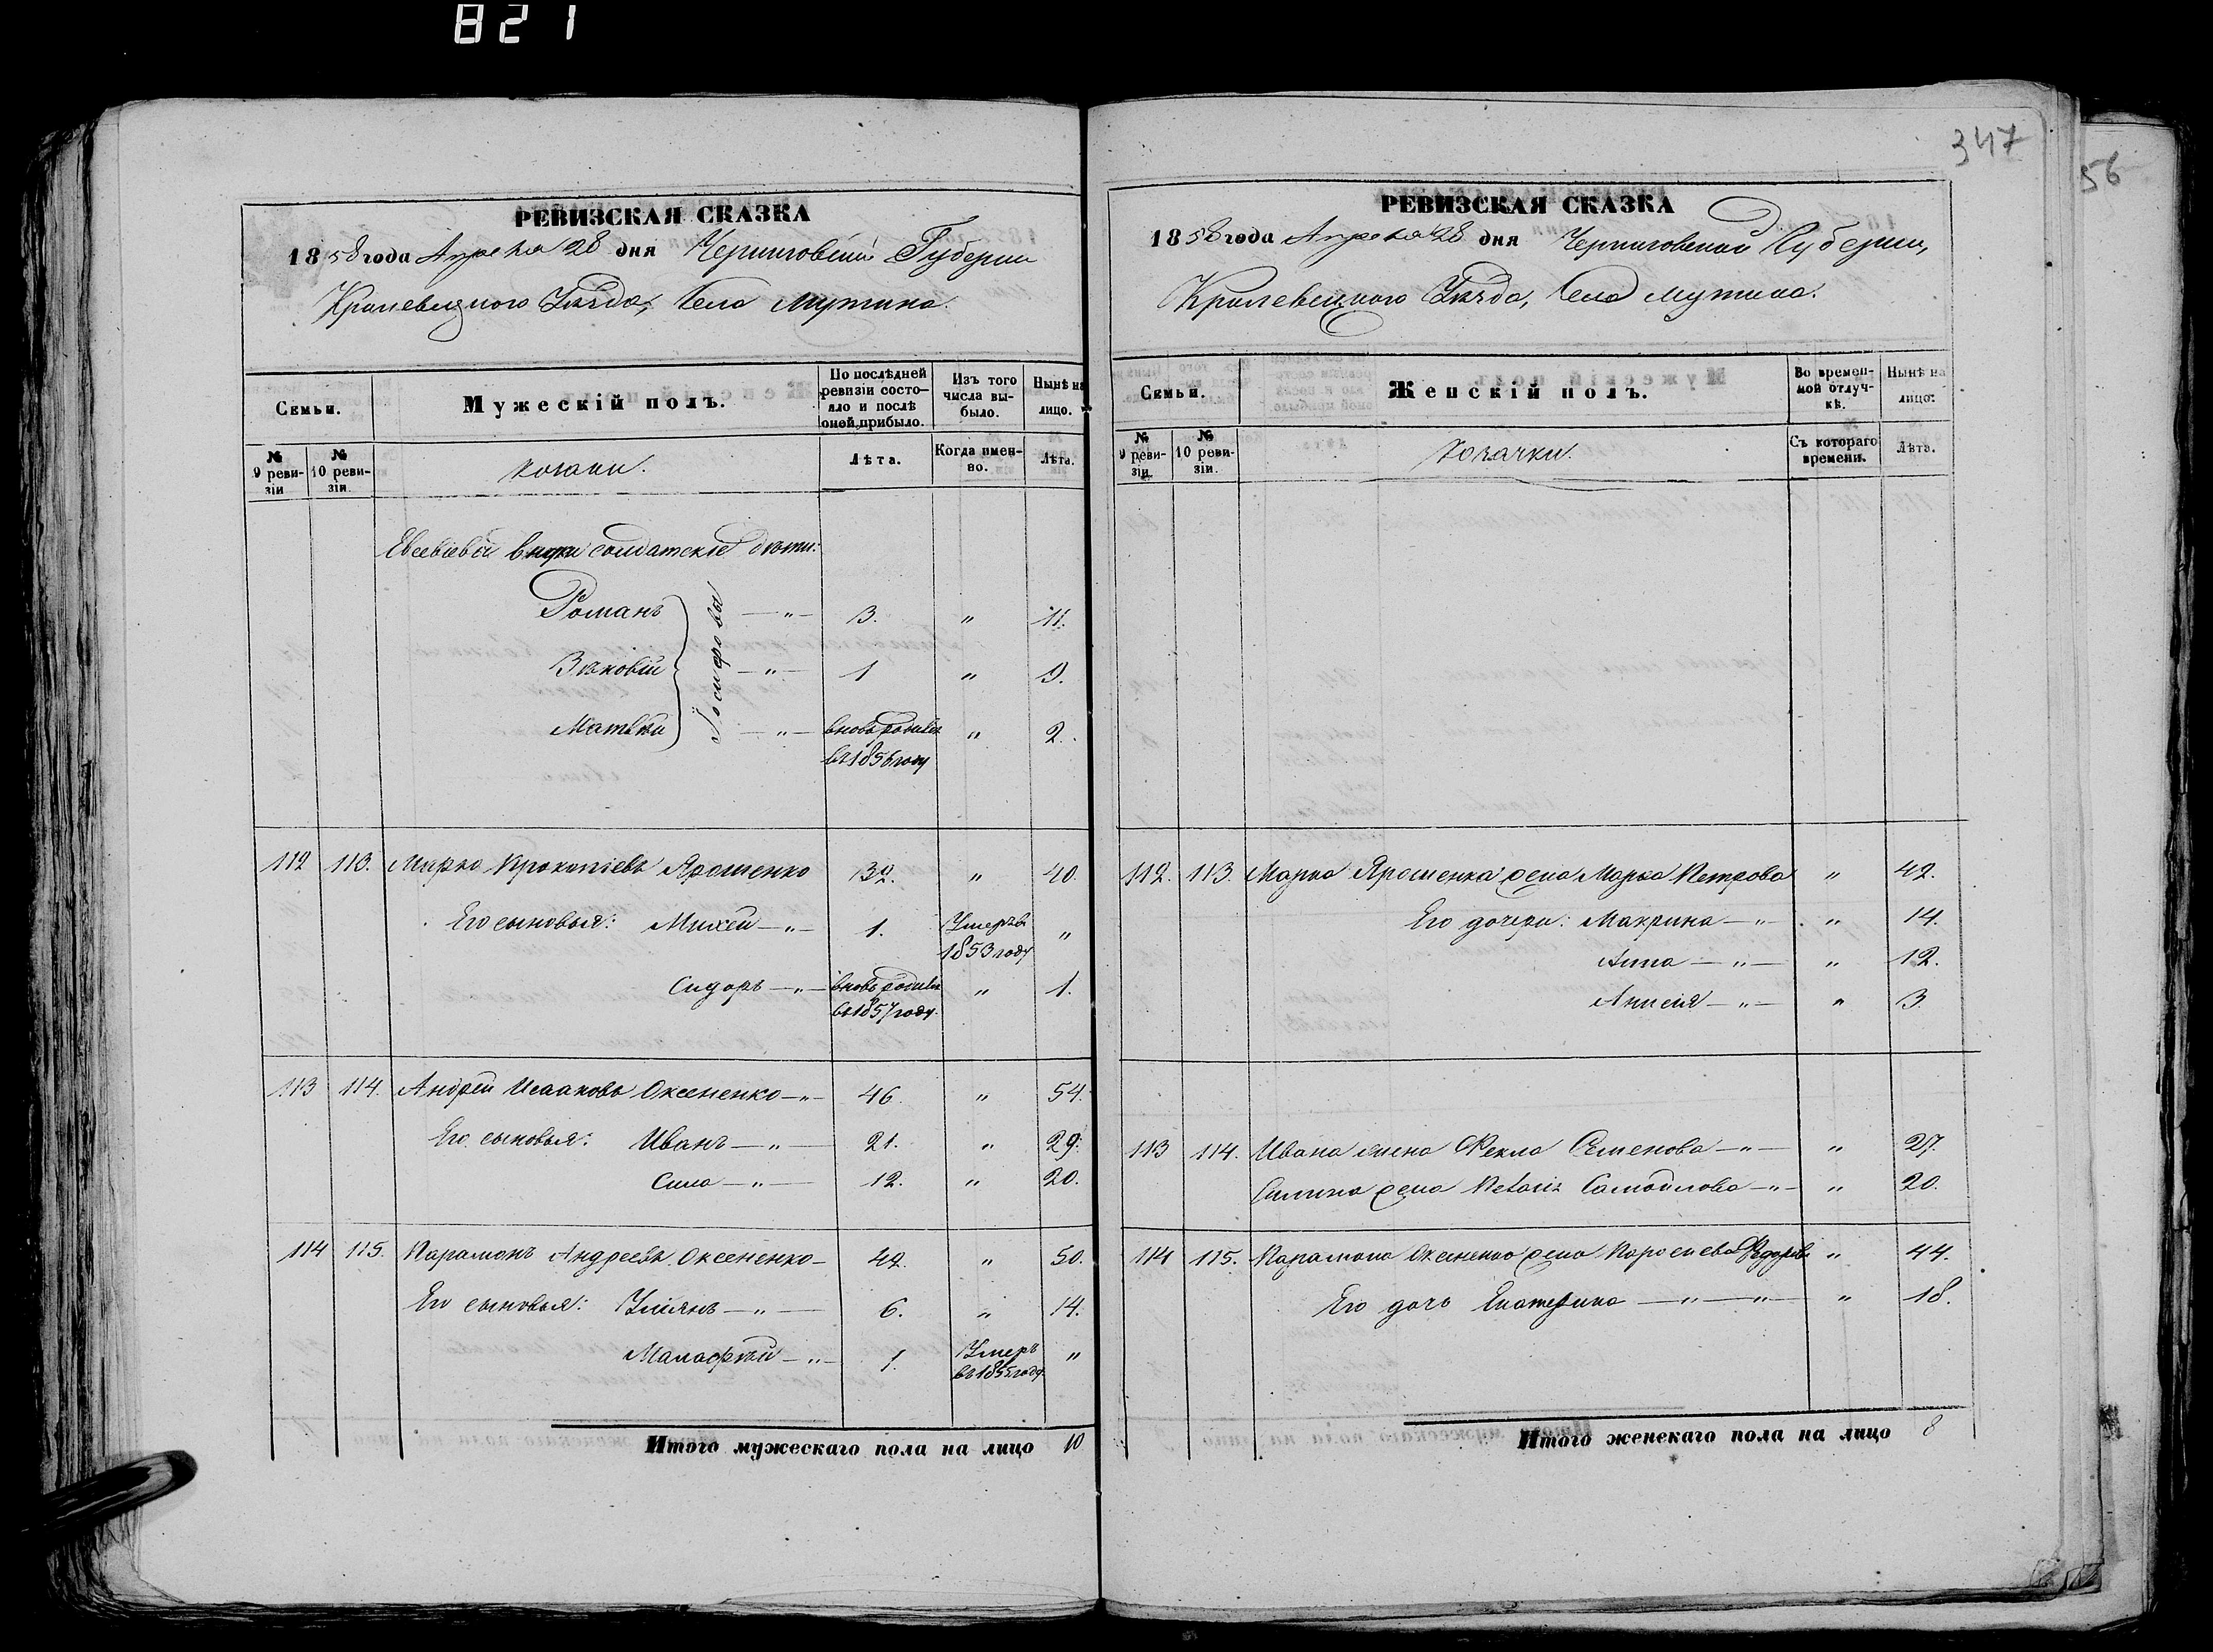 821
347
56
РЕВИЗСКАЯ СКАЗКА
1858 года Апреля 28 дня Черниговской Губернии
Кролевецкого Уѣзда, Села Мутина.
Семьи.
Мужескій полъ.
По послѣдней ревизіи состояло и послѣ оной прибыло.
Изъ того числа выбыло.
Нынѣ на лицо.
№ 9 ревизіи
№ 10 ревизіи.
козаки.
Лѣта.
Когда именно.
Лѣта.
солдатскіе дѣти:
Іосифовы
Романъ —"— 3. " 11.
—"— 1 " 9.
Матвѣй —"— вновь родился въ 1856 году " 2.
112 113. Марко Прокопіевъ Ярошенко 32. " 40.
Его сыновья: Михей —"— 1. Умеръ въ 1853 году "
Сидоръ —"— вновь родился въ 1857 году. " 1.
113 114. Андрей Исааковъ Оксененко —"— 46. " 54.
Его сыновья: Иванъ —"— 21. " 29.
Сила —"— 12. " 20.
114 115. Парамонъ Андреевъ Оксененко — 42. " 50.
Его сыновья: —"— 6. " 14.
Малафѣй —"— 1. Умеръ въ 1855 году "
Итого мужескаго пола на лицо 10
РЕВИЗСКАЯ СКАЗКА
1858 года Апреля 28 дня Черниговской Губернии,
Кролевецкого Уѣзда, Села Мутина.
Семьи.
Женскій полъ.
Во временной отлучкѣ.
Нынѣ на лицо:
№ 9 ревизіи.
№ 10 ревизіи.
козачки.
Съ котораго времени.
Лѣта.
112. 113. Марка Ярошенка жена Марья Петрова " 42.
Его дочери: Макрина —"— " 14.
Анна —"— " 12.
Анисія —"— " 3.
113 114. Ивана жена Фекла Семенова —"— " 27.
Силина жена Самойлова —"— " 20.
114 115. Парамона Оксененко жена " 44.
Его дочь Екатерина —"—"— " 18.
Итого женскаго пола на лицо 8